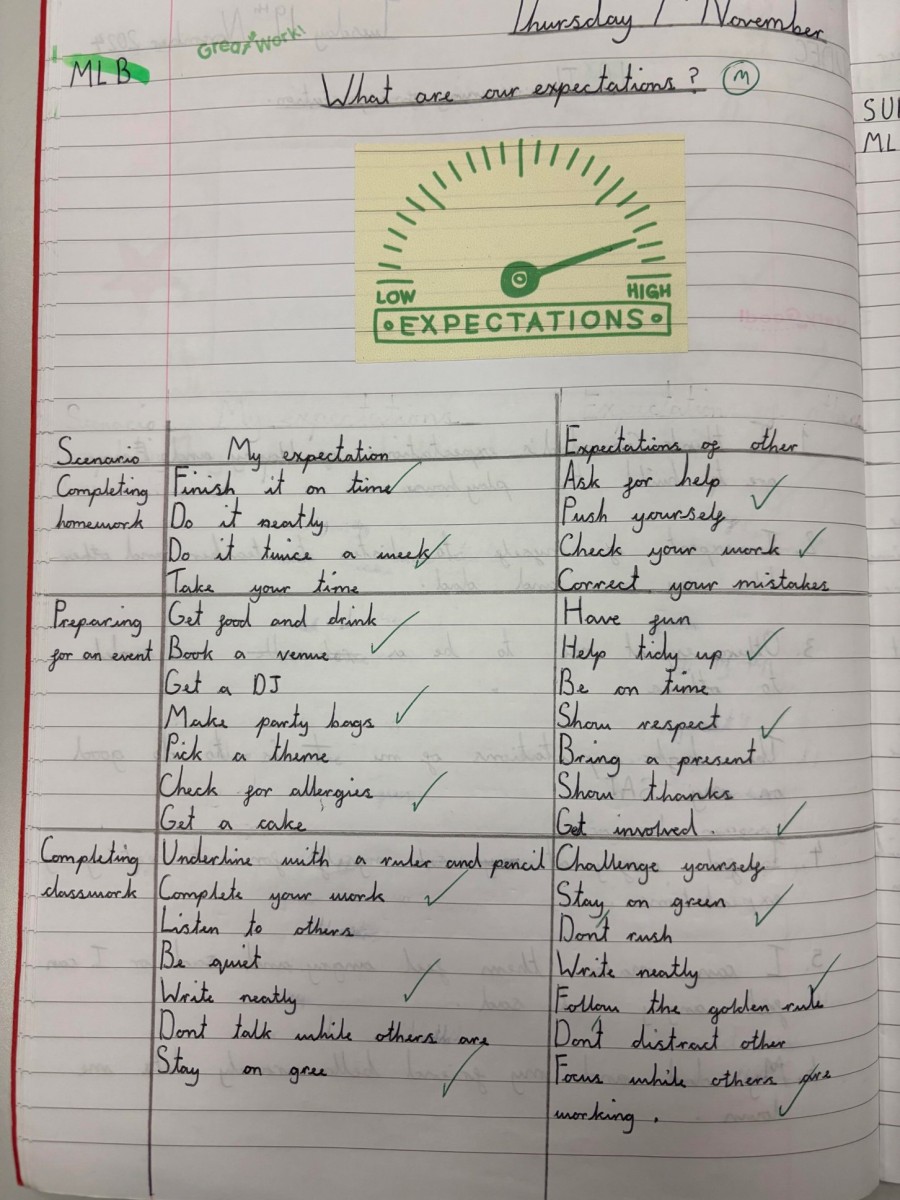 Thursday 7 November
Great Work!
MLB
What are our expectations? M
SU
ML
LOW
HIGH
EXPECTATIONS
Scenario
My expectation
Expectations of other
Completing
homework
Finish it on time
Do it neatly
Do it twice a week
Take your time
Ask for help
Push yourself
Check your work
Correct your mistakes
Preparing
for an event
Get food and drink
Book a venue
Get a DJ
Make party bags
Pick a theme
Check for allergies
Get a cake
Have fun
Help tidy up
Be on time
Show respect
Bring a present
Show thanks
Get involved.
Completing
classwork
Underline with a ruler and pencil
Complete your work
Listen to others
Be quiet
Write neatly
Dont talk while others are
Stay on gree
Challenge yourself
Stay on green
Don't rush
Write neatly
Follow the golden rule
Don't distract other
Focus while others are
working.